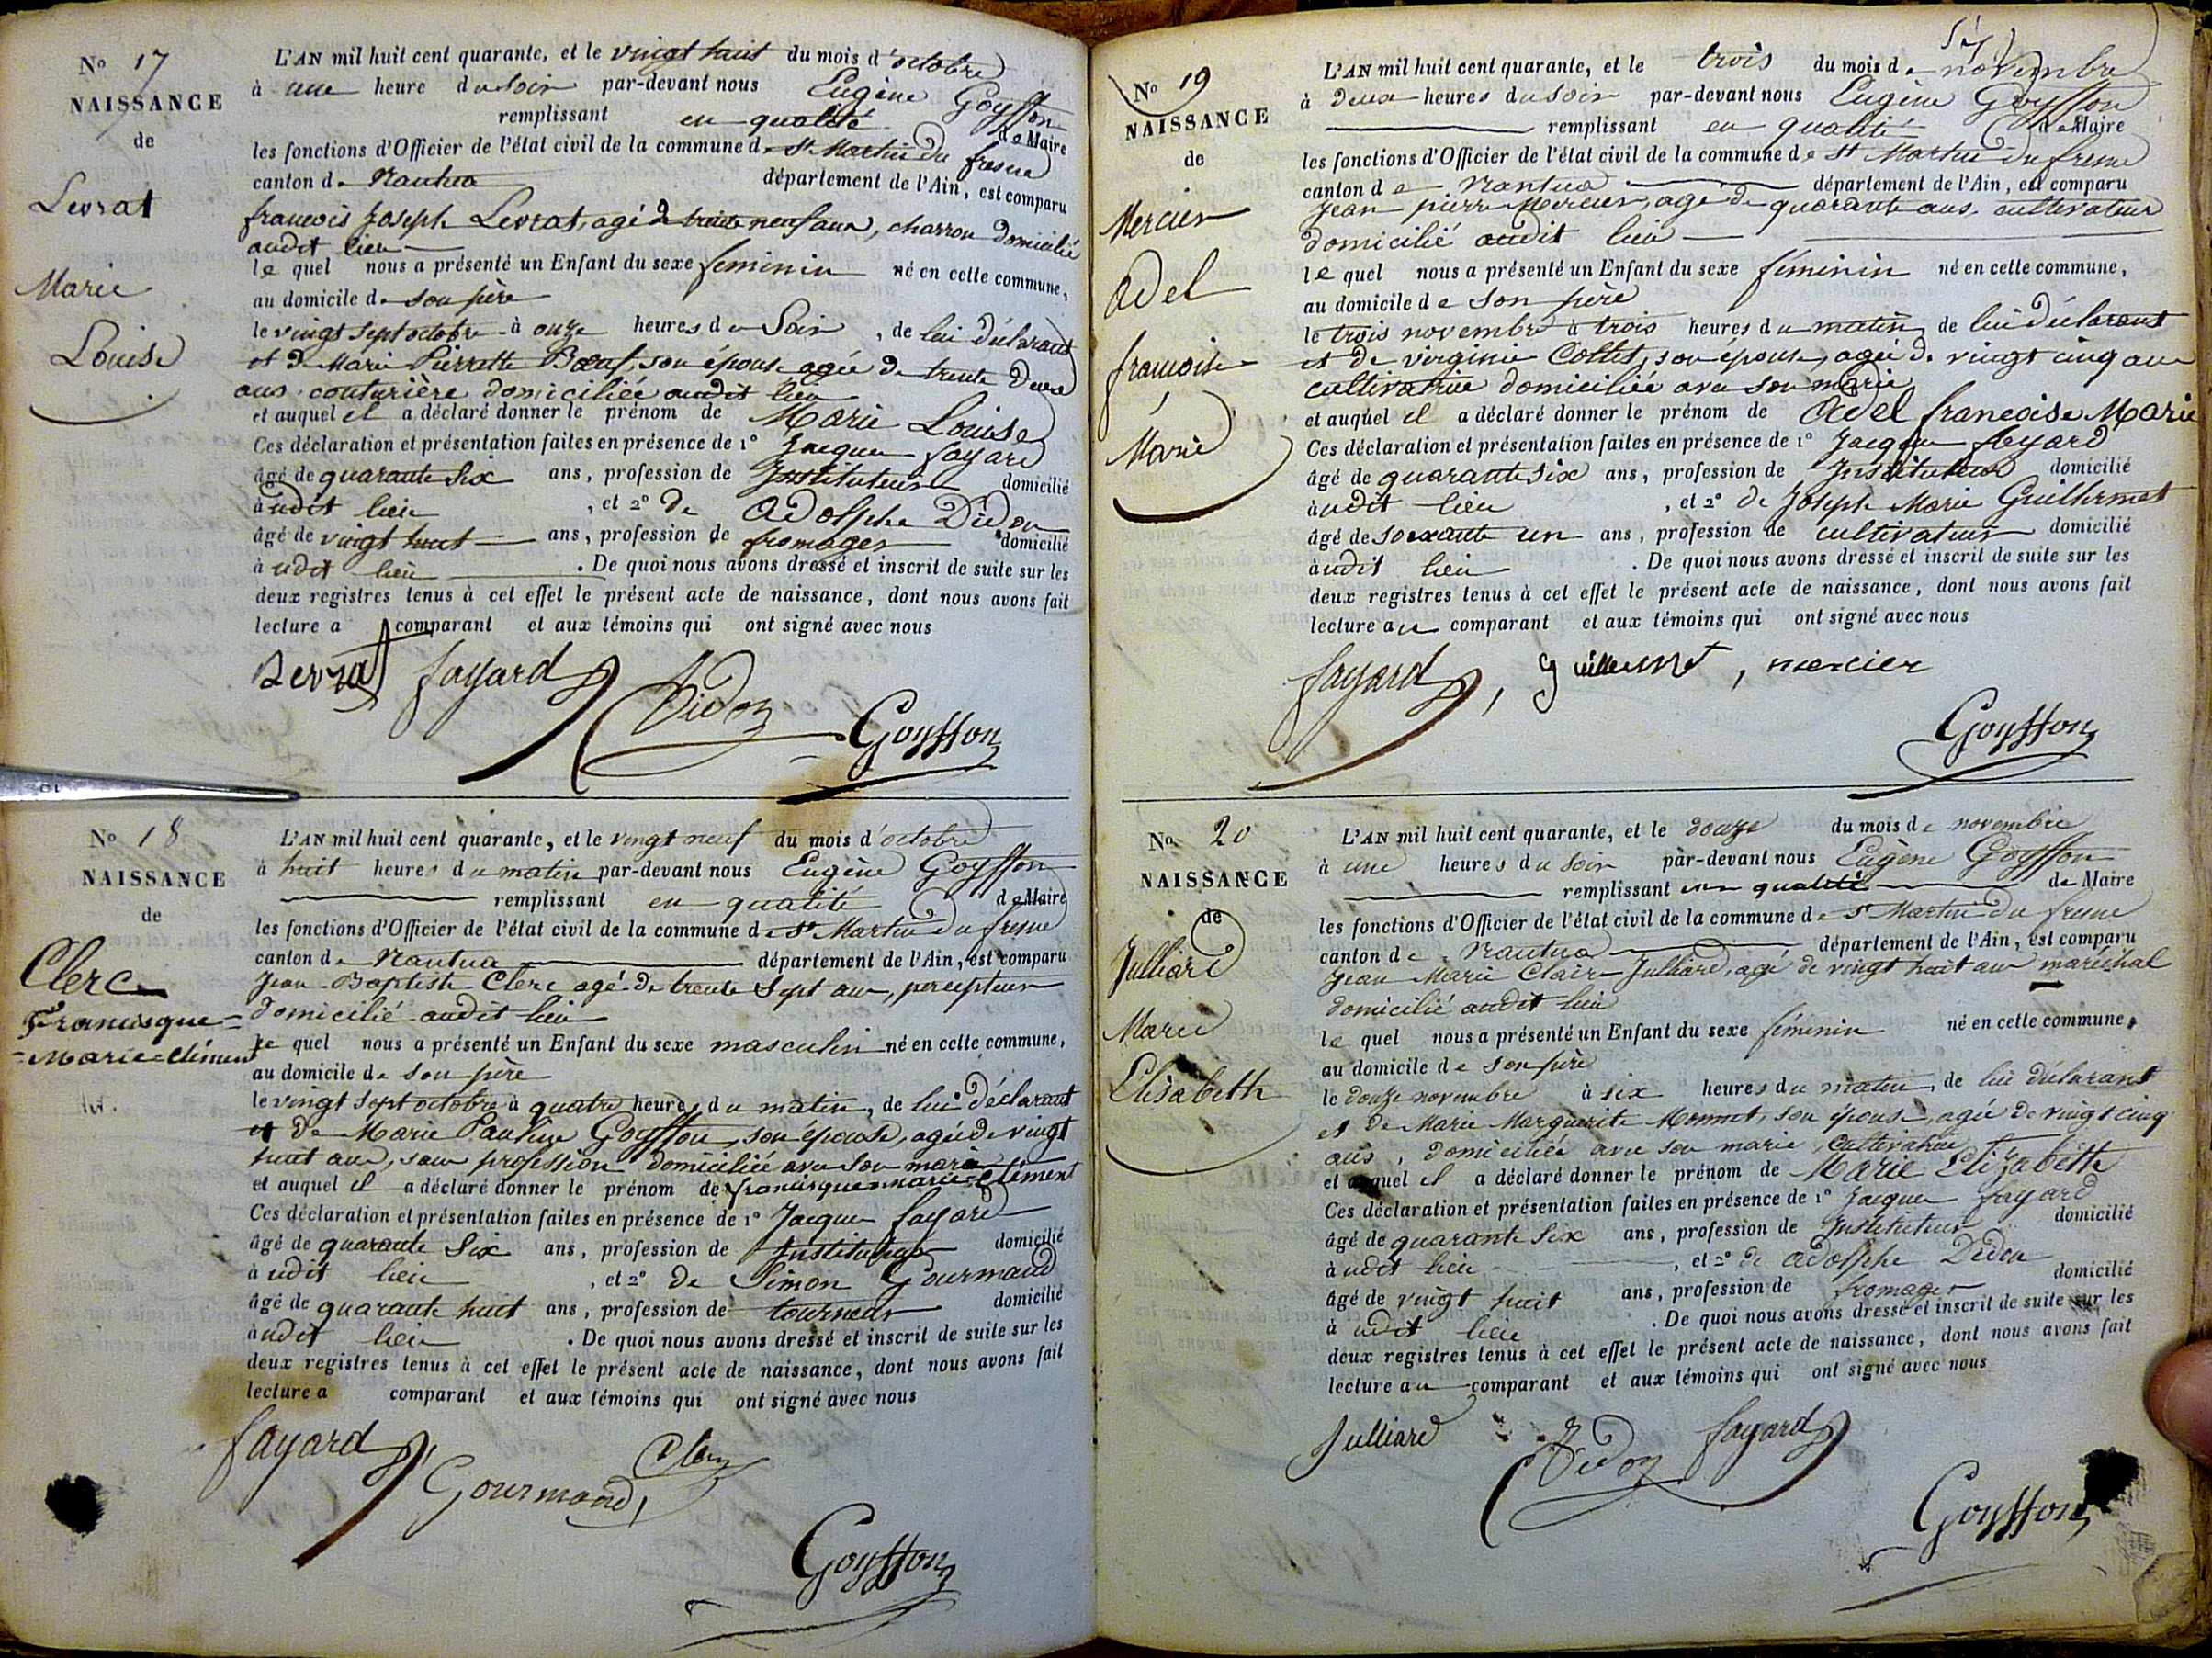 N° 17
NAISSANCE
de
Levrat
Marie
Louise
L'AN mil huit cent quarante, et le vingt huit du mois d'octobre
à une heure du soir par-devant nous Eugène Goyffon
remplissant en qualité de Maire
les fonctions d'Officier de l'état civil de la commune de St Martin du fresne
canton de Nantua département de l'Ain, est comparu
francois Joseph Levrat, agé de trente neuf ans, charron domicilié
audit lieu
le quel nous a présenté un Enfant du sexe feminin né en cette commune,
au domicile de son père
le vingt sept octobre à onze heures du Soir, de lui déclarant
et de Marie Pierrette Bœuf, son épouse agée de trente deux
ans couturière domiciliée audit lieu
et auquel il a déclaré donner le prénom de Marie Louise
Ces déclaration et présentation faites en présence de 1° Jacques fayard
âgé de quarante six ans, profession de Instituteur domicilié
audit lieu, et 2° de Adolphe Didon
âgé de vingt huit ans, profession de fromager domicilié
à udit lieu. De quoi nous avons dressé et inscrit de suite sur les
deux registres tenus à cet effet le présent acte de naissance, dont nous avons fait
lecture a comparant et aux témoins qui ont signé avec nous
Levrat fayard
Didon
Goyffon
N° 18
NAISSANCE
de
Clerc
Francisque=
=Marie=Clément
L'AN mil huit cent quarante, et le vingt neuf du mois d'octobre
à huit heures du matin par-devant nous Eugène Goyffon
remplissant en qualité de Maire
les fonctions d'Officier de l'état civil de la commune de St Martin du fresne
canton de Nantua département de l'Ain, est comparu
Jean-Baptiste Clerc agé de trente sept ans, percepteur
domicilié audit lieu
le quel nous a présenté un Enfant du sexe masculin né en cette commune,
au domicile de son père
le vingt sept octobre à quatre heures du matin, de lui déclarant
et de Marie Pauline Goyffon, son épouse, agée de vingt
huit ans, sans profession domiciliée avec son mari
et auquel il a déclaré donner le prénom de francisque=marie=Clément
Ces déclaration et présentation faites en présence de 1° Jacques fayard
âgé de quarante Six ans, profession de Instituteur domicilié
à udit lieu, et 2° de Simon Gourmand
âgé de quarante huit ans, profession de tourneur domicilié
à udit lieu. De quoi nous avons dressé et inscrit de suite sur les
deux registres tenus à cet effet le présent acte de naissance, dont nous avons fait
lecture a comparant et aux témoins qui ont signé avec nous
fayard
Gourmand, Clerc
Goyffon
N° 19
NAISSANCE
de
Mercier
Adel
francoise
Marie
L'AN mil huit cent quarante, et le trois du mois de novembre
à Deux heures du soir par-devant nous Eugène Goyffon
remplissant en qualité de Maire
les fonctions d'Officier de l'état civil de la commune de St Martin du fresne
canton de Nantua département de l'Ain, est comparu
Jean pierre Mercier, agé de quarante ans, cultivateur
domicilié audit lieu
le quel nous a présenté un Enfant du sexe féminin né en cette commune,
au domicile de son père
le trois novembre à trois heures du matin, de lui déclarant
et de virginie Collet, son épouse, agée de vingt cinq ans
cultivatrice domiciliée avec son marie
et auquel il a déclaré donner le prénom de Adel francoise Marie
Ces déclaration et présentation faites en présence de 1° Jacques fayard
âgé de quarante six ans, profession de Instituteur domicilié
àudit lieu, et 2° de Joseph Marie Guillermet
âgé de soixante un ans, profession de cultivateur domicilié
àudit lieu. De quoi nous avons dressé et inscrit de suite sur les
deux registres tenus à cet effet le présent acte de naissance, dont nous avons fait
lecture au comparant et aux témoins qui ont signé avec nous
fayard, guillermet, mercier
Goyffon
N° 20
NAISSANCE
de
Julliard
Marie
Elisabeth
L'AN mil huit cent quarante, et le douze du mois de novembre
à une heures du soir par-devant nous Eugène Goyffon
remplissant en qualité de Maire
les fonctions d'Officier de l'état civil de la commune de St Martin du fresne
canton de Nantua département de l'Ain, est comparu
Jean Marie Clair Julliard, agé de vingt huit ans maréchal
domicilié audit lieu
le quel nous a présenté un Enfant du sexe féminin né en cette commune,
au domicile de son père
le douze novembre à six heures du matin, de lui déclarant
et de Marie Marguerite Monnet, son épouse, agée de vingt cinq
ans, domiciliée avec son marie, Cultivatrice
et auquel il a déclaré donner le prénom de Marie Elizabeth
Ces déclaration et présentation faites en présence de 1° Jacques fayard
âgé de quarante six ans, profession de Instituteur domicilié
à udit lieu, et 2° de adolphe Didon
âgé de vingt huit ans, profession de fromager domicilié
à udit lieu. De quoi nous avons dressé et inscrit de suite sur les
deux registres tenus à cet effet le présent acte de naissance, dont nous avons fait
lecture au comparant et aux témoins qui ont signé avec nous
Julliard Didon fayard
Goyffon